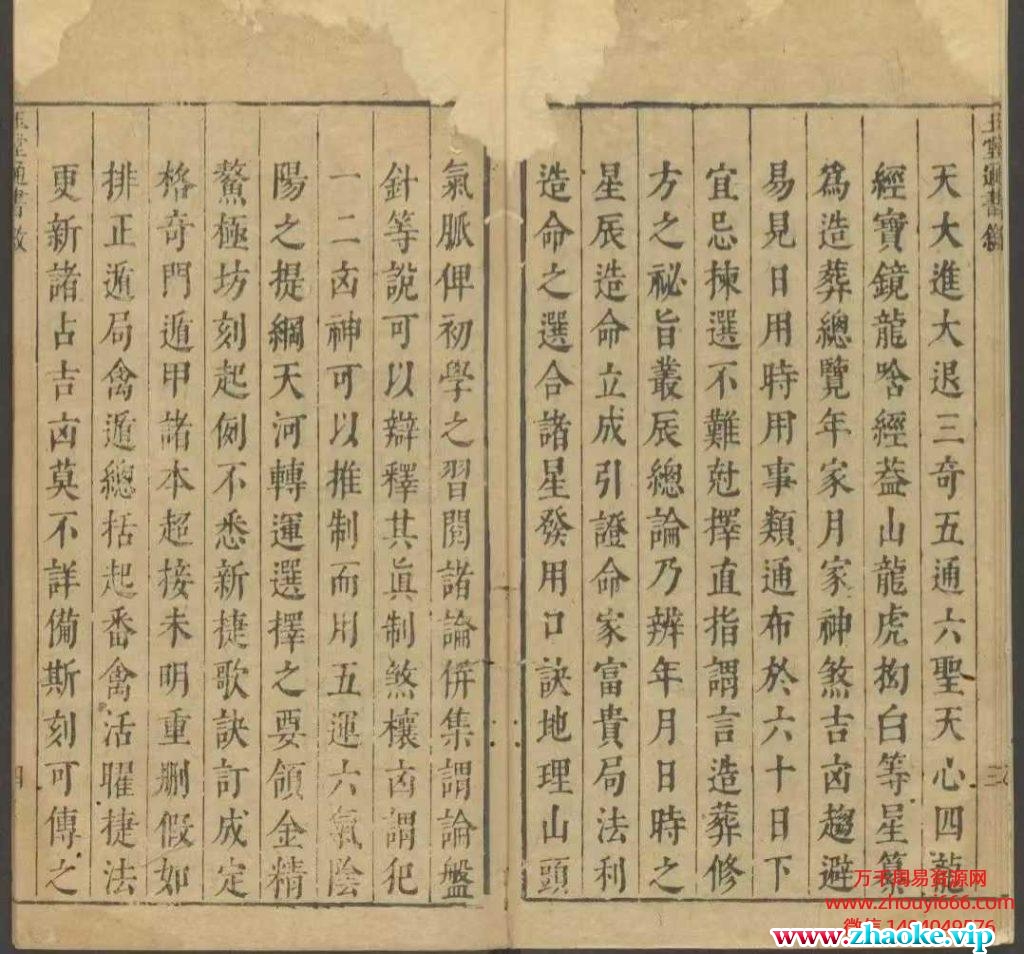 天大進大退三奇五通六聖天心四龍
經寶鏡龍啥經葢山龍虎抝白等星纂
爲造葬總覽年家月家神煞吉㐫趨避
易見日用時用事類通布於六十日下
宜忌揀選不難尅擇直指謂言造葬修
方之祕旨叢辰總論乃辨年月日時之
星辰造命立成引證命家富貴局法利
造命之選合諸星發用口訣地理山頭
氣脈俾初學之習閱諸論併集謂論盤
針等說可以辯釋其眞制煞欀㐫謂犯
一二㐫神可以推制而用五運六氣陰
陽之提綱天河轉運選擇之要領金精
鰲極坊刻起例不悉新捷歌訣訂成定
格奇門遁甲諸本超接未明重删假如
排正遁局禽遁總括起番禽活曜捷法
更新諸占吉㐫莫不詳備斯刻可傳之
堂通書
三
四
万千周易资源网
www.zhouyi666.com
www.zhaoke.vip